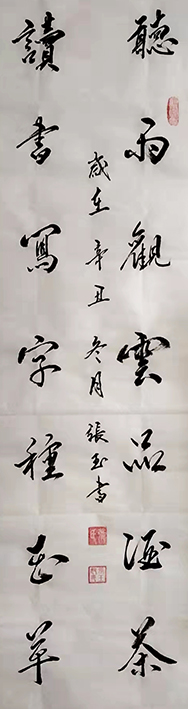 聽雨觀雲品酒茶
讀書寫字種花草
歲在辛丑冬月張玉書